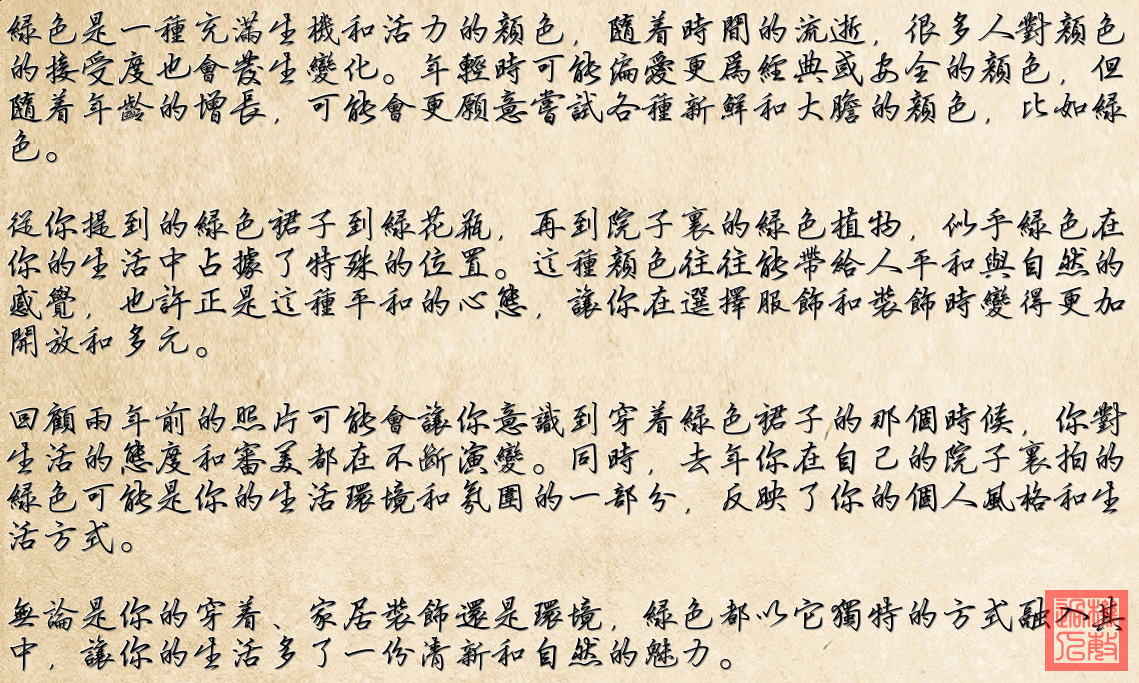 綠色是一種充滿生機和活力的顏色，隨着時間的流逝，很多人對顏色
的接受度也會發生變化。年輕時可能偏愛更爲經典或安全的顏色，但
隨着年齡的增長，可能會更願意嘗試各種新鮮和大膽的顏色，比如綠
色。
從你提到的綠色裙子到綠花瓶，再到院子裏的綠色植物，似乎綠色在
你的生活中占據了特殊的位置。這種顏色往往能帶給人平和與自然的
感覺，也許正是這種平和的心態，讓你在選擇服飾和裝飾時變得更加
開放和多元。
回顧兩年前的照片可能會讓你意識到穿着綠色裙子的那個時候，你對
生活的態度和審美都在不斷演變。同時，去年你在自己的院子裏拍的
綠色可能是你的生活環境和氛圍的一部分，反映了你的個人風格和生
活方式。
無論是你的穿着、家居裝飾還是環境，綠色都以它獨特的方式融入其
中，讓你的生活多了一份清新和自然的魅力。